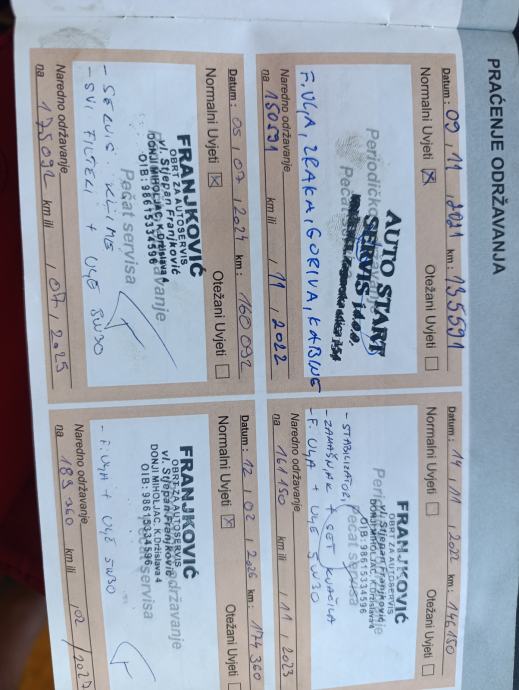 PRAĆENJE ODRŽAVANJA
Datum: 09, 11, 2021 km: 135591
Normalni Uvjeti ☒ Otežani Uvjeti ☐
AUTO START
SERVIS j.d.o.o.
F. ULJA, ZRAKA, GORIVA, KABINE
Naredno održavanje
na 150591 km ili , 11, 2022
Datum: 14, 11, 2022 km: 146150
Normalni Uvjeti ☐ Otežani Uvjeti ☐
FRANJKOVIĆ
OBRT ZA AUTOSERVIS
vl. Stjepan Franjković
DONJI MIHOLJAC, K.Držislava 4
OIB: 98615334596
Pečat servisa
- STABILIZATORI
- ZAMAŠNJAK + SET KVAČILA
- F. ULJA + ULJE 5W30
Naredno održavanje
na 161150 km ili , 11, 2023
Datum: 05, 07, 2024 km: 160092
Normalni Uvjeti ☒ Otežani Uvjeti ☐
FRANJKOVIĆ
OBRT ZA AUTOSERVIS
vl. Stjepan Franjković
DONJI MIHOLJAC, K.Držislava 4
OIB: 98615334596
Pečat servisa
- SERVIS KLIME
- SVI FILTERI + ULJE 5W30
Naredno održavanje
na 175092 km ili , 07, 2025
Datum: 12, 02, 2026 km: 174360
Normalni Uvjeti ☒ Otežani Uvjeti ☐
FRANJKOVIĆ
OBRT ZA AUTOSERVIS
vl. Stjepan Franjković
DONJI MIHOLJAC, K.Držislava 4
OIB: 98615334596
- F. ULJA + ULJE 5W30
Naredno održavanje
na 189360 km ili , 02 / 2027